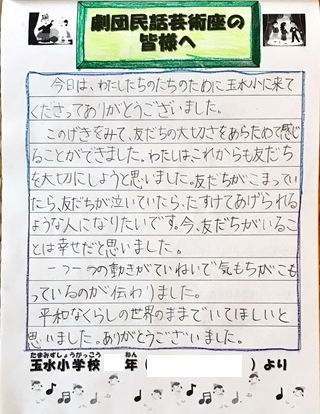 劇団民話芸術座の
皆様へ
今日は、わたしたちのたちのために玉水小に来て
くださってありがとうございました。
このげきをみて、友だちの大切さをあらためて感じ
ることができました。わたしは、これからも友だち
を大切にしようと思いました。友だちがこまってい
たら、友だちが泣いていたら、たすけてあげられる
ような人になりたいです。今、友だちがいるこ
とは幸せだと思いました。
一つ一つの動きがていねいで気もちがこも
っているのが伝わりました。
平和なくらしの世界のままでいてほしいと
思いました。ありがとうございました。
たまみずしょうがっこう
玉水小学校 年( )より